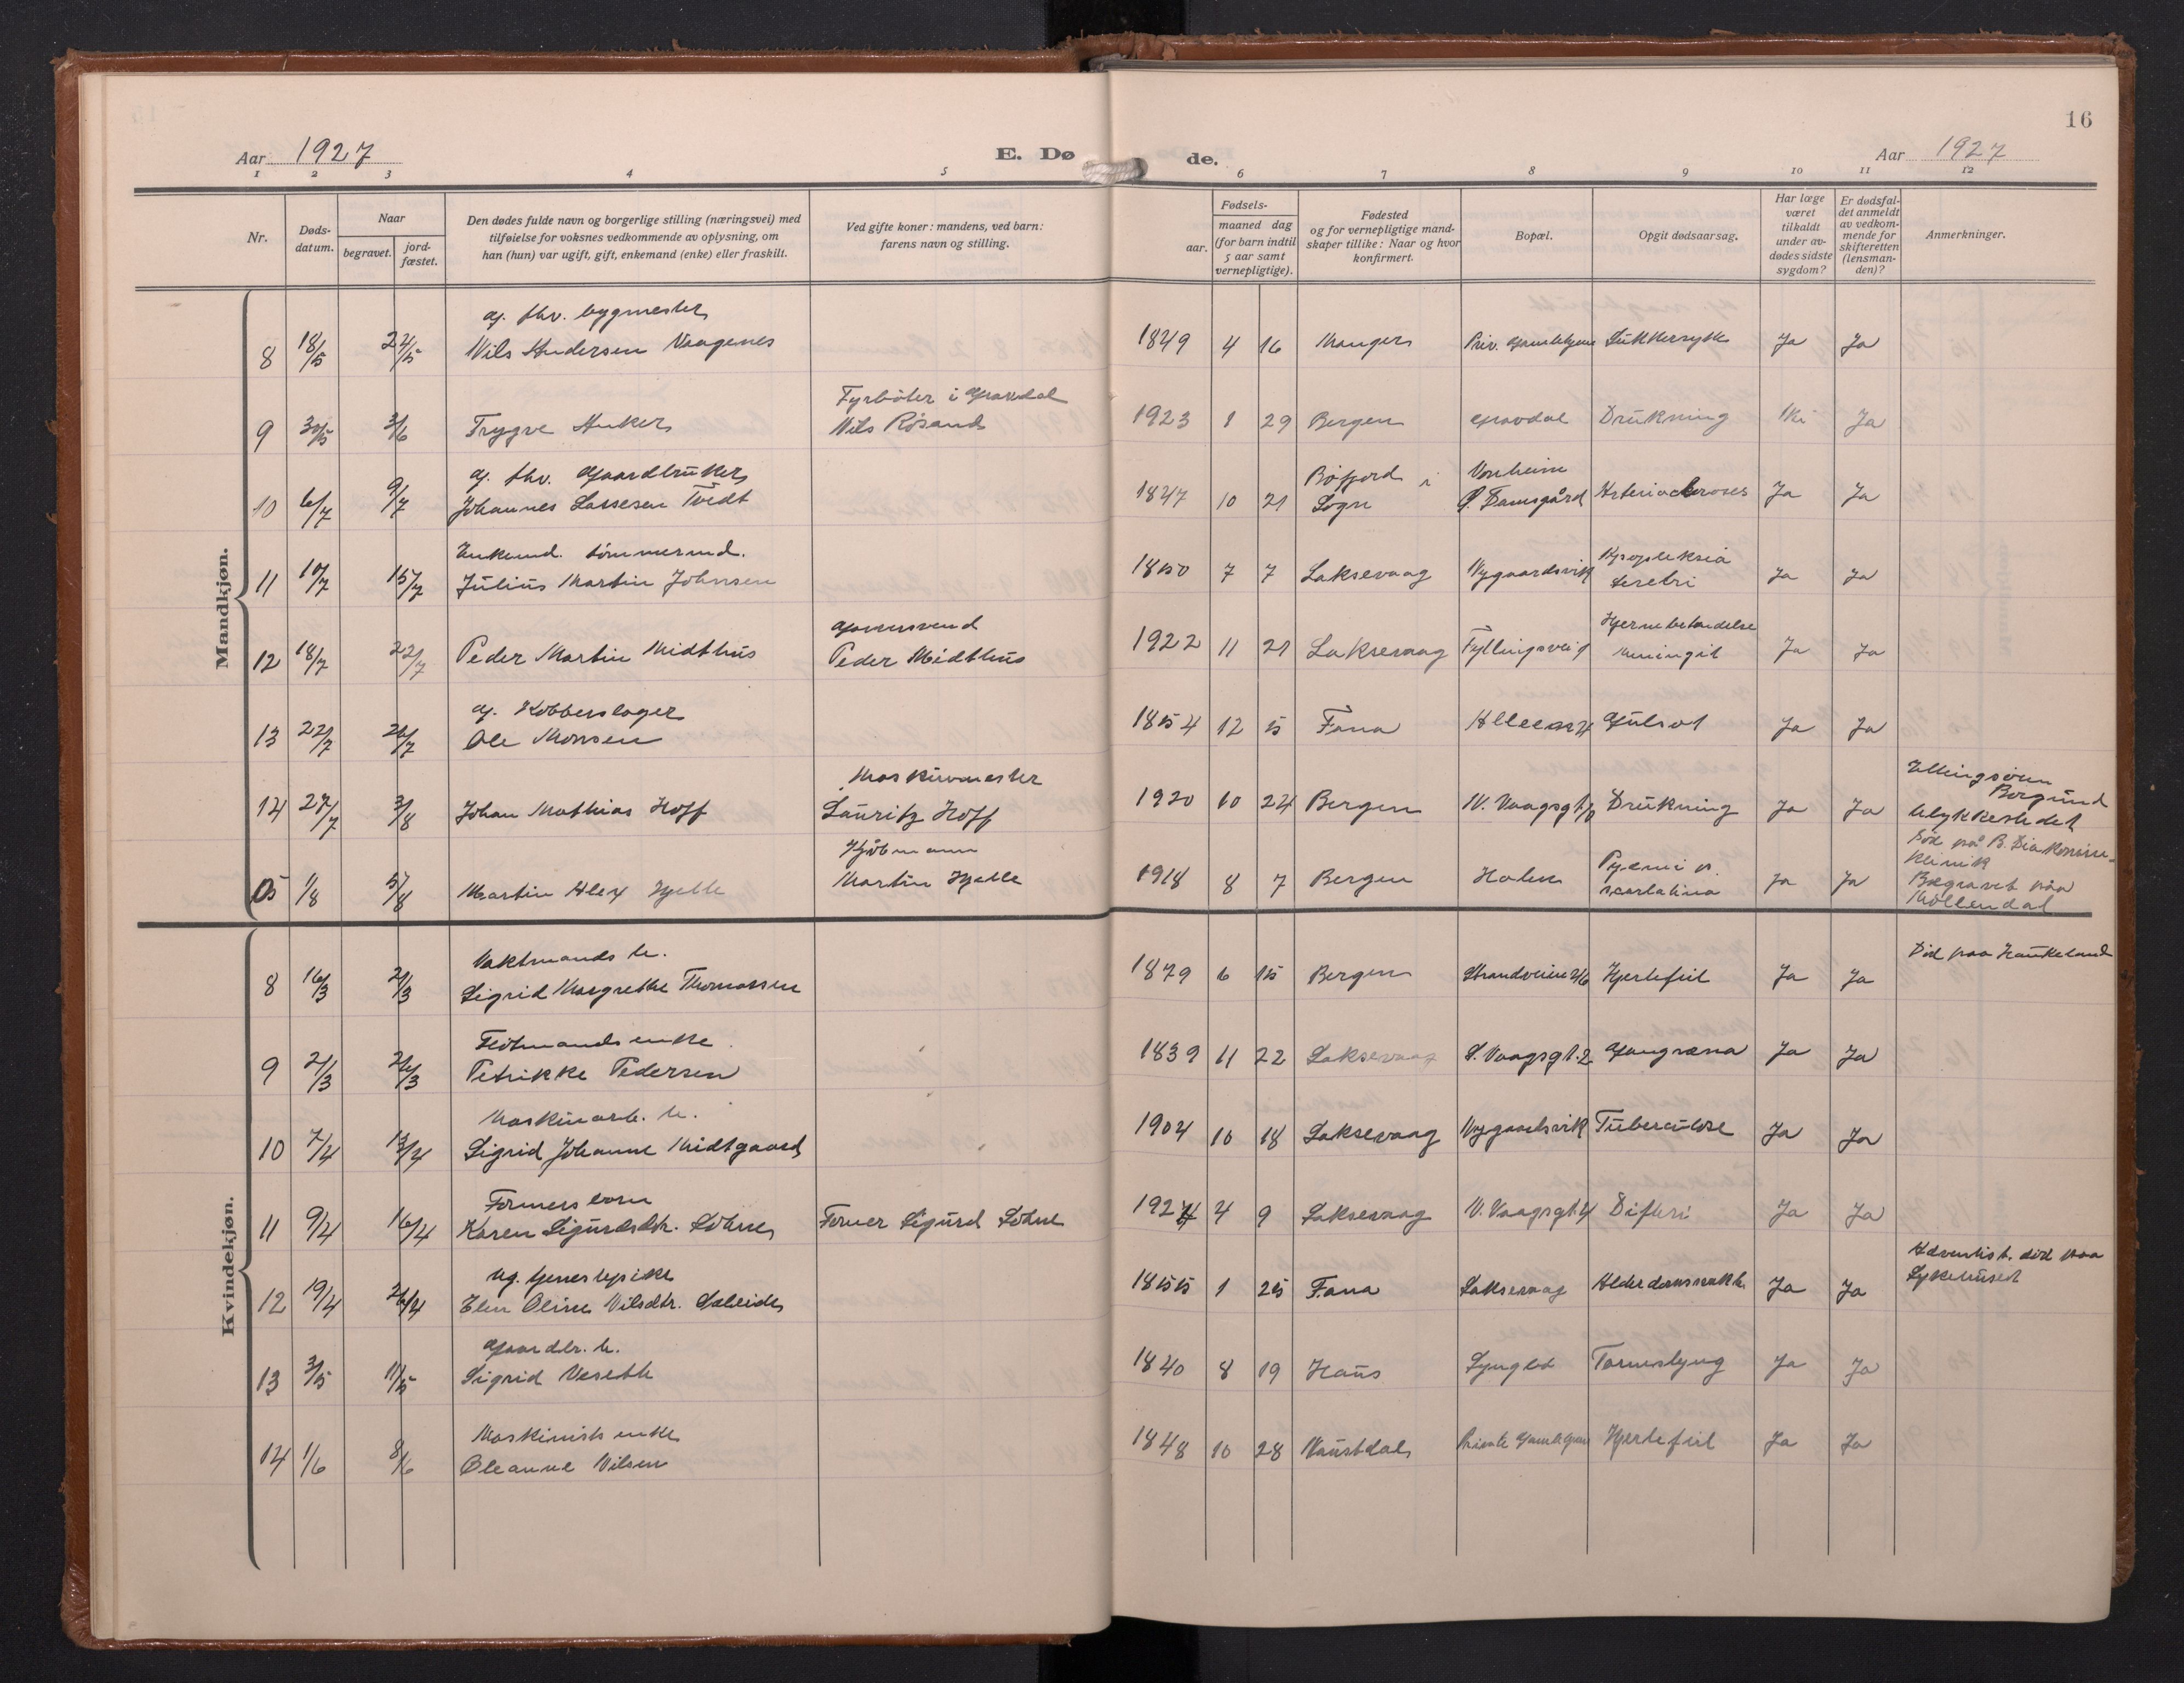 16
Aar 1927
E. Dø
de.
Aar 1927
1 2 3 4 5 6 7 8 9 10 11 12
Nr.
Døds-
datum.
Naar
begravet.
jord-
fæstet.
Den dødes fulde navn og borgerlige stilling (næringsvei) med
tilføielse for voksnes vedkommende av oplysning, om
han (hun) var ugift, gift, enkemand (enke) eller fraskilt.
Ved gifte koner: mandens, ved barn:
farens navn og stilling.
Fødsels-
aar.
maaned dag
(for barn indtil
5 aar samt
vernepligtige).
Fødested
og for vernepligtige mand-
skaper tillike: Naar og hvor
konfirmert.
Bopæl.
Opgit dødsaarsag.
Har læge
været
tilkaldt
under av-
dødes sidste
sygdom?
Er dødsfal-
det anmeldt
av vedkom-
mende for
skifteretten
(lensman-
den)?
Anmerkninger.
Mandkjøn.
g. fhv. bygmester
8 18/5 24/5 Nils Andersen Vaagenes 1849 4 16 Manger Priv. Gamlehjem Sukkersyke Ja Ja
Fyrbøter i Gravdal
9 30/5 3/6 Trygve Anker Nils Røsand 1923 1 29 Bergen Gravdal Drukning Ja
g. fhv. Gaardbruker
10 6/7 9/7 Johannes Lassesen Tvedt 1847 10 21 Bøfjord i Sogn Ø. Damsgård Ja Ja
Enkemd. tømmermd.
11 10/7 15/7 Julius Martin Johnsen 1850 7 7 Laksevaag Nygaardsvik Apopleksia cerebri Ja Ja
12 18/7 22/7 Peder Martin Midthus Peder Midthus 1922 11 21 Laksevaag Fyllingsvei Hjernebetændelse Meningit Ja Ja
g. Kobberslager
13 22/7 26/7 Ole Monsen 1854 12 5 Fana Alleen 4 Gulsot Ja Ja
Maskinmester
14 27/7 3/8 Johan Mathias Hoff Lauritz Hoff 1920 10 24 Bergen N. Vaagsgt. Drukning Ja Ja
Ellingsøen
Borgund
Ulykkestedet
Kjøbmann
15 1/8 5/8 Martin Alex Hjelle Martin Hjelle 1918 8 7 Bergen Holen Pyæmi p. scarlatina Ja Ja
Død på B. Diakonisse-
klinik
Begravet paa
Møllendal
Kvindekjøn.
Vaktmands h.
8 16/3 21/3 Sigrid Margrethe Thomassen 1879 6 15 Bergen Strandveien Hjertefeil Ja Ja Død paa Haukeland
enke
9 21/3 26/3 Petrikke Pedersen 1839 11 22 Laksevaag S. Vaagsgt. 2 Gangræna Ja Ja
Maskinarb. h.
10 7/4 13/4 Sigrid Johanne Midtgaard 1904 10 18 Laksevaag Nygaardsvik Tuberculose Ja Ja
Formers barn
11 9/4 16/4 Karen Sigurdsdtr. Løhne Former Sigurd Løhne 1924 4 9 Laksevaag N. Vaagsgt. 4 Difteri Ja Ja
Ug. tjenestepike
12 19/4 26/4 Elen Oline Nilsdtr. Sæleide 1855 1 25 Fana Laksevaag Alderdomssvakh. Ja Ja
Adventist. død paa
Sykehuset
Gaardbr. h.
13 3/5 11/5 Sigrid Veseth 1840 8 19 Haus Lyngbø Tarmslyng Ja Ja
Maskinists enke
14 1/6 8/6 Oleanne Nilsen 1848 10 28 Naustdal Private Gamlehjem Hjertefeil Ja Ja